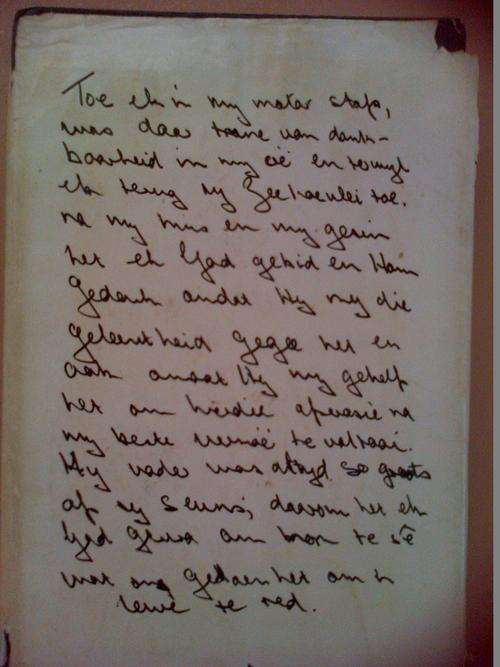 Toe ek in my motor stap,
was daar trane van dank-
baarheid in my oë en terwyl
ek terug ry Zeekoevlei toe.
na my huis en my gesin
het ek God gebid en Hom
gedank omdat Hy my die
geleentheid gegee het en
ook omdat Hy my gehelp
het om hierdie operasie na
my beste vermoë te voltooi.
My vader was altyd so groots
op sy seuns, daarom het ek
God gevra om hom te sê
wat ons gedoen het om 'n
lewe te red.